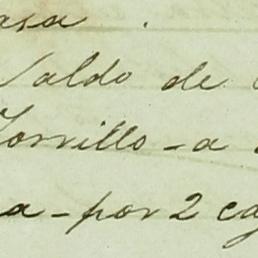 asa .
Valdo de
Torrillo - a
a - por 2 caj